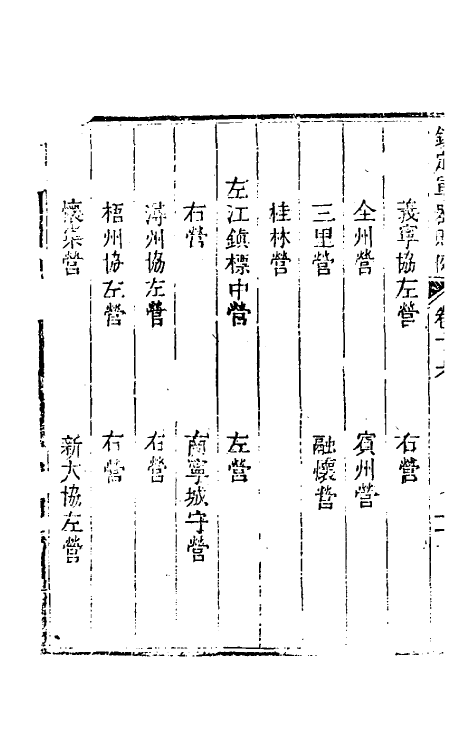 欽定軍器則例 卷十六
義寧協左營 右營
全州營 賓州營
三里營 融懷營
桂林營
左江鎮標中營 左營
右營 南寧城守營
潯州協左營 右營
梧州協左營 右營
懷集營 新太協左營